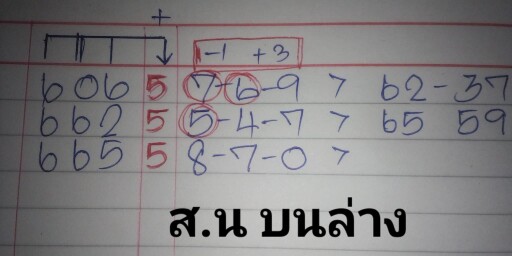 +
-1 +3
6065 7-6-9 > 62-37
6625 5-4-7 > 65 59
6655 8-7-0 >
ส.น บนล่าง